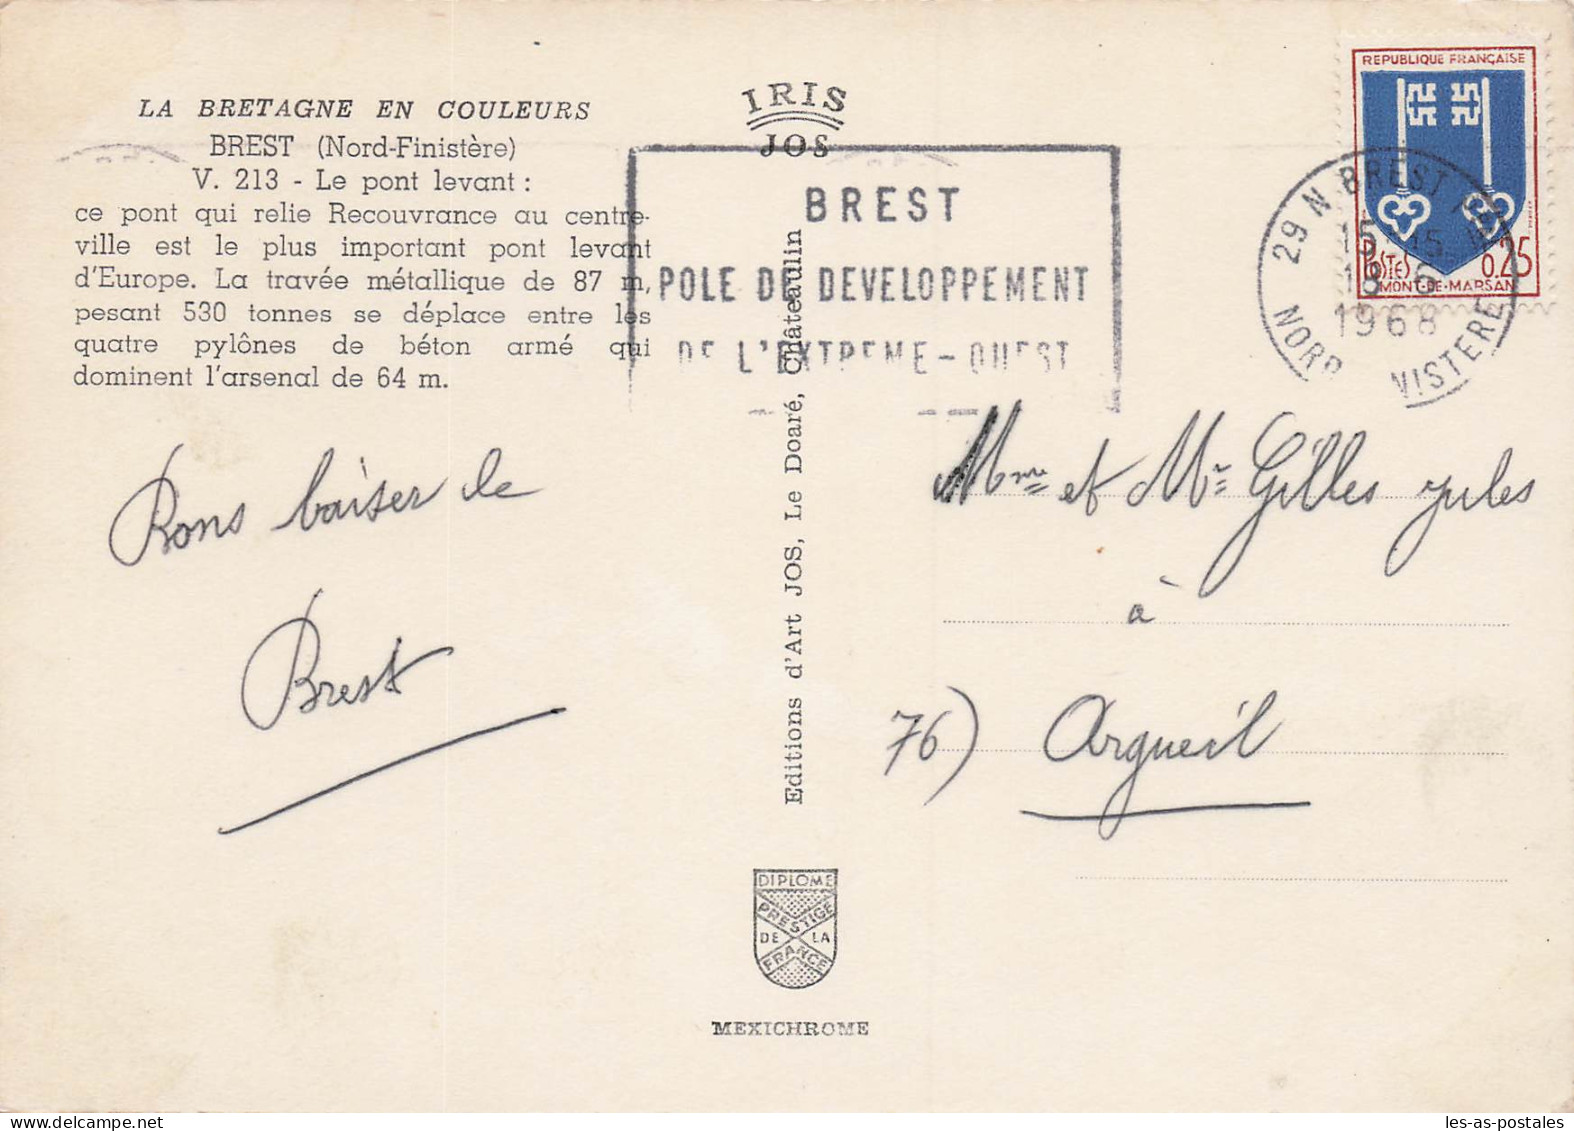 LA BRETAGNE EN COULEURS
BREST (Nord-Finistère)
V. 213 - Le pont levant :
ce pont qui relie Recouvrance au centre-
ville est le plus important pont levant
d'Europe. La travée métallique de 87 m,
pesant 530 tonnes se déplace entre les
quatre pylônes de béton armé qui
dominent l'arsenal de 64 m.
Bons baiser de
Brest
IRIS
JOS
BREST
POLE DE DEVELOPPEMENT
DE L'EXTREME-OUEST
Editions d'Art JOS, Le Doaré, Châteaulin
DIPLOME
PRESTIGE
DE LA
FRANCE
MEXICHROME
REPUBLIQUE FRANÇAISE
POSTES 0.25
MONT-DE-MARSAN
29 N BREST
18 6
1968
Mme et Mr Gilles Jules
à
76) Argueil
les-as-postales